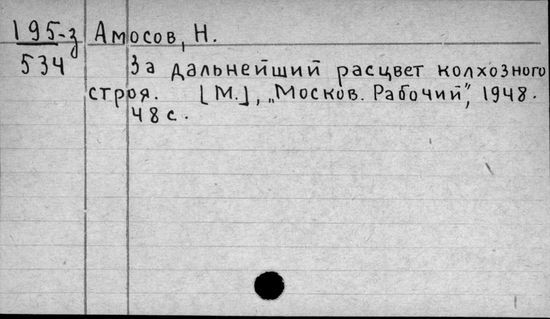 195-3 Амосов, Н.
534 За дальнейший расцвет колхозного
строя. [М.], „Москов. Рабочий", 1948.
48 с.